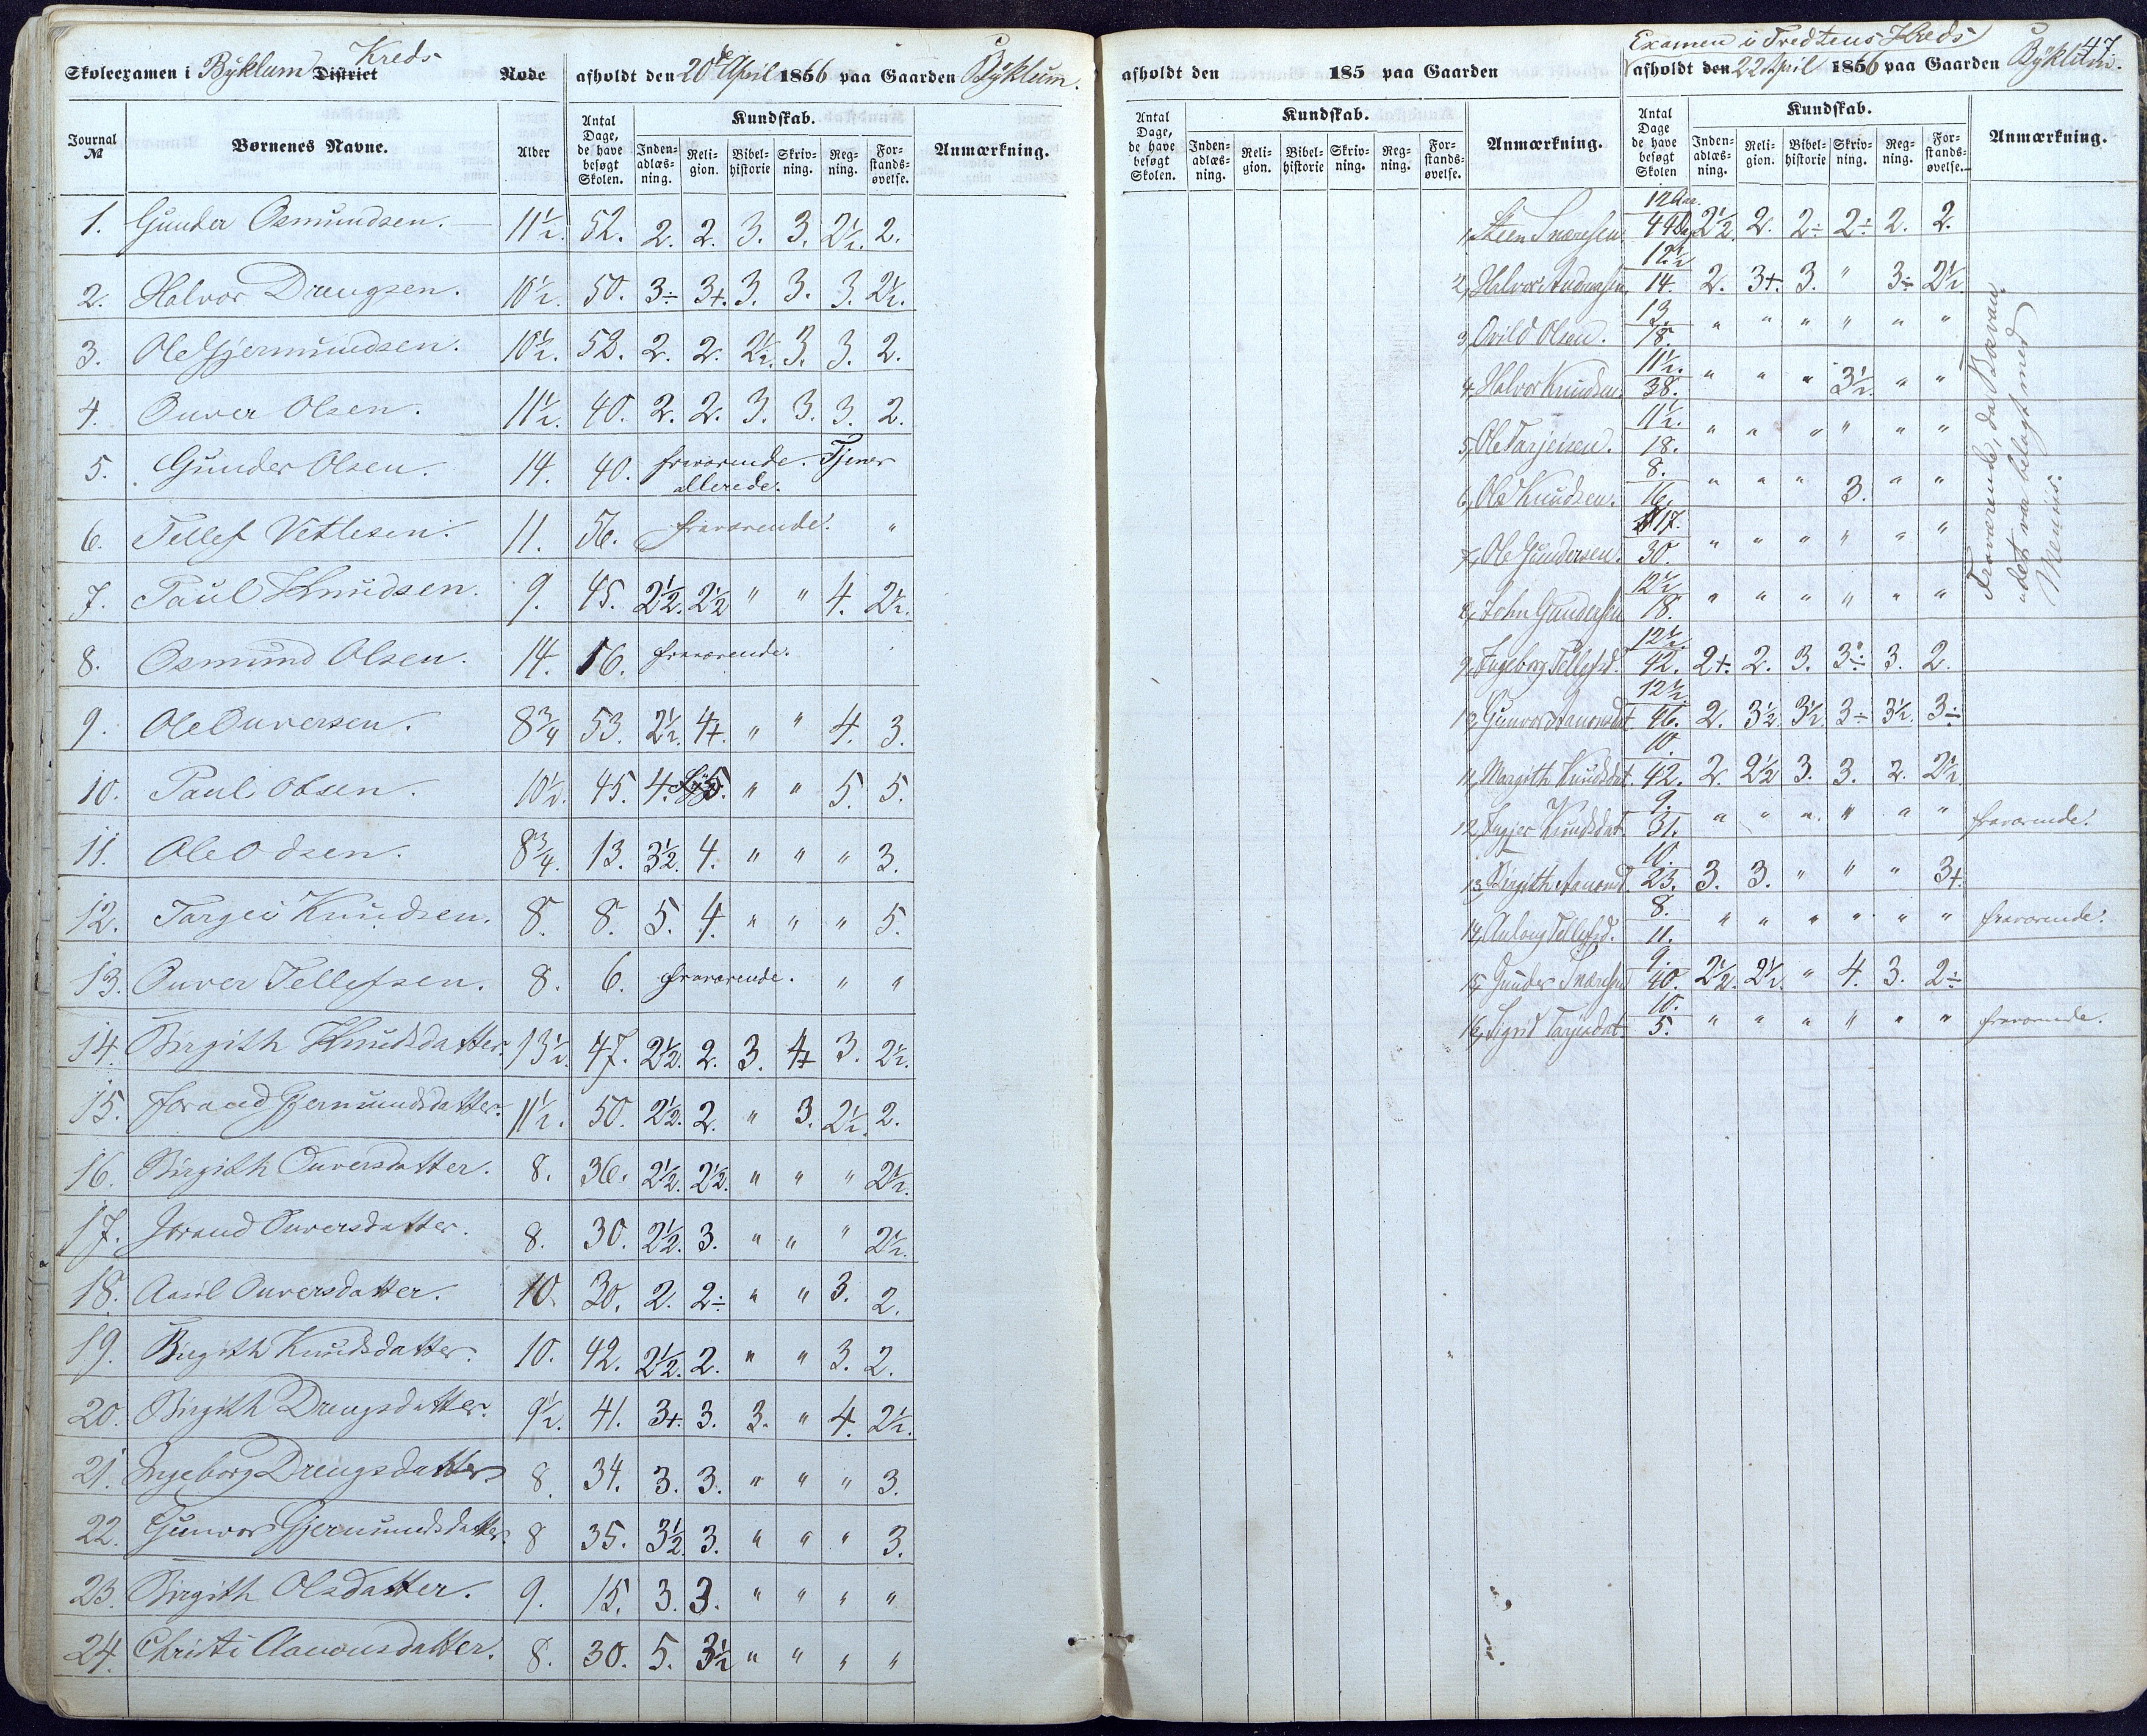 Skoleexamen i Byklum District Kreds Rode afholdt den 20de April 1856 paa Gaarden Byklum.
Journal № Børnenes Navne. Alder Antal Dage, de have besøgt Skolen. Kundskab. Inden-adlæs-ning. Reli-gion. Bibel-historie Skriv-ning. Reg-ning. For-stands-øvelse. Anmærkning.
1. Gunder Osmundsen. 11½. 52. 2. 2. 3. 3. 2½. 2.
2. Halvor Drengsen. 10½. 50. 3÷ 3+. 3. 3. 3. 2½.
3. Ole Gjermundsen. 10½. 52. 2. 2. 2½. 3. 3. 2.
4. Ouver Olsen. 11½. 40. 2. 2. 3. 3. 3. 2.
5. Gunder Olsen. 14. 40. fraværende. Tjener allerede.
6. Tellef Vetlesen. 11. 56. fraværende. "
7. Paul Knudsen. 9. 45. 2½. 2½ " " 4. 2½.
8. Osmund Olsen. 14. 16. fraværende.
9. Ole Ouversen. 8¾ 53. 2½. 4+. " " 4. 3.
10. Paul Olsen. 10½. 45. 4. 5. " " 5. 5.
11. Ole Odsen. 8¾. 13. 3½. 4. " " " 3.
12. Targei Knudsen. 8. 8. 5. 4. " " " 5.
13. Ouver Tellefsen. 8. 6. fraværende. " "
14. Birgith Knudsdatter. 13½. 47. 2½. 2. 3. 4+ 3. 2½.
15. Joraad Gjermundsdatter. 11½. 50. 2½. 2. " 3. 2½. 2.
16. Birgith Ouversdatter. 8. 36. 2½. 2½. " " " 2½.
17. Joraud Ouversdatter. 8. 30. 2½. 3. " " " 2½.
18. Aasil Ouversdatter. 10. 30. 2. 2÷ " " 3. 2.
19. Birgith Knudsdatter. 10. 42. 2½. 2. " " 3. 2.
20. Birgith Drengsdatter. 9½. 41. 3+. 3. 3. " 4. 2½.
21. Ingeborg Drengsdatter 8. 34. 3. 3. " " " 3.
22. Gunvor Gjermundsdatter. 8 35. 3½. 3. " " " 3.
23. Birgith Olsdatter. 9. 15. 3. 3. " " " "
24. Christi Aanonsdatter. 8. 30. 5. 3½ " " " "
47.
Examen i Tredteus Kreds
afholdt den 185 paa Gaarden afholdt den 22 April 1856 paa Gaarden Byklum.
Antal Dage, de have besøgt Skolen. Kundskab. Inden-adlæs-ning. Reli-gion. Bibel-historie Skriv-ning. Reg-ning. For-stands-øvelse. Anmærkning. Antal Dage de have besøgt Skolen Kundskab. Inden-adlæs-ning. Reli-gion. Bibel-historie Skriv-ning. Reg-ning. For-stands-øvelse. Anmærkning.
1, Steen 12 Aar. 44 2½. 2. 2÷ 2÷ 2. 2.
2, Halvor 12½ 14. 2. 3+. 3. " 3÷ 2½.
3, Ovild Olsen. 13. 18. " " " " " "
4, Halvor Knudsen. 11½. 38. " " " 3½. " "
5, Ole Tarjeisen. 11½. 18. " " " " " "
6, Ole Knudsen. 8. 16. " " " 3. " "
7, Ole Gundersen. 17. 30. " " " " " "
8, John Gundersen 12½ 18. " " " " " "
Fraværende, da
det var belagt med
9, Ingeborg Tellefsd. 12½. 42. 2+. 2. 3. 3÷ 3. 2.
10, Gunvor Aanonsdat. 12½. 46. 2. 3½. 3½. 3÷ 3½. 3÷
11, Margith Knudsdat. 10. 42. 2. 2½ 3. 3. 2. 2½.
12, Knudsdat. 9. 31. " " " " " " fraværende.
13, Birgith Aanonsd. 10. 23. 3. 3. " " " 3+.
14, Aslaug Tellefsd. 8. 11. " " " " " " fraværende.
15, Gunder 9. 40. 2½. 2½. " 4. 3. 2÷
16, Sigrid Tarjeisdat. 10. 5. " " " " " " fraværende.